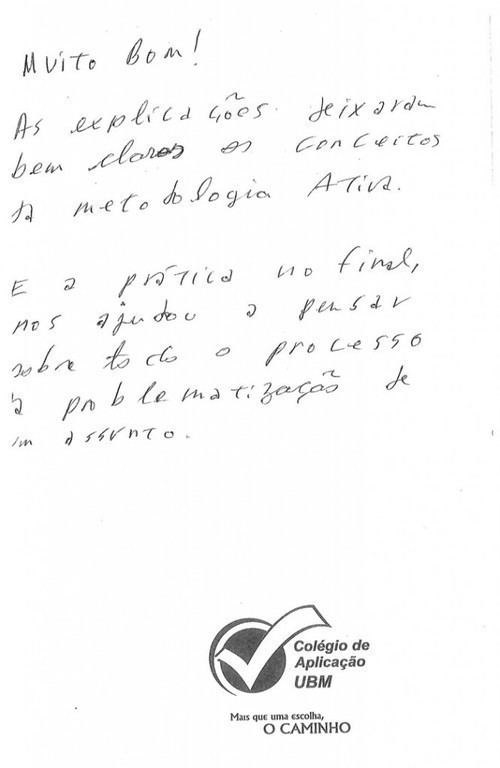 Muito Bom!
As explicações deixaram
bem claros os conceitos
da metodologia Ativa.
E a prática no final,
nos ajudou a pensar
sobre todo o processo
da problematização de
um assunto.
Colégio de
Aplicação
UBM
Mais que uma escolha,
O CAMINHO